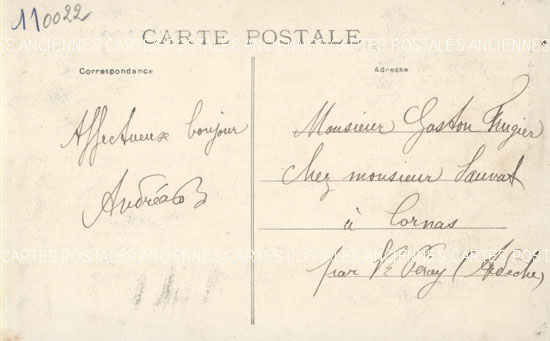 110022
CARTE POSTALE
CARTES POSTALES ANCIENNES CARTES POSTALES ANCIENNES CARTES POSTALES ANCIENNES
Correspondance
Adresse
Affectueux bonjour
Andréa B
Monsieur Gaston Frugier
Chez monsieur Sauvat
à Cornas
par St Péray (Ardèche)
CARTES POSTALES ANCIENNES CARTES POSTALES ANCIENNES CARTES POSTALES ANCIENNES